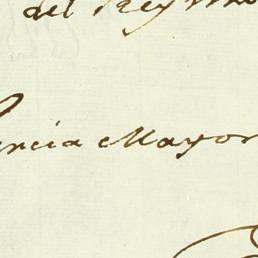 del Reyno
encia Mayor